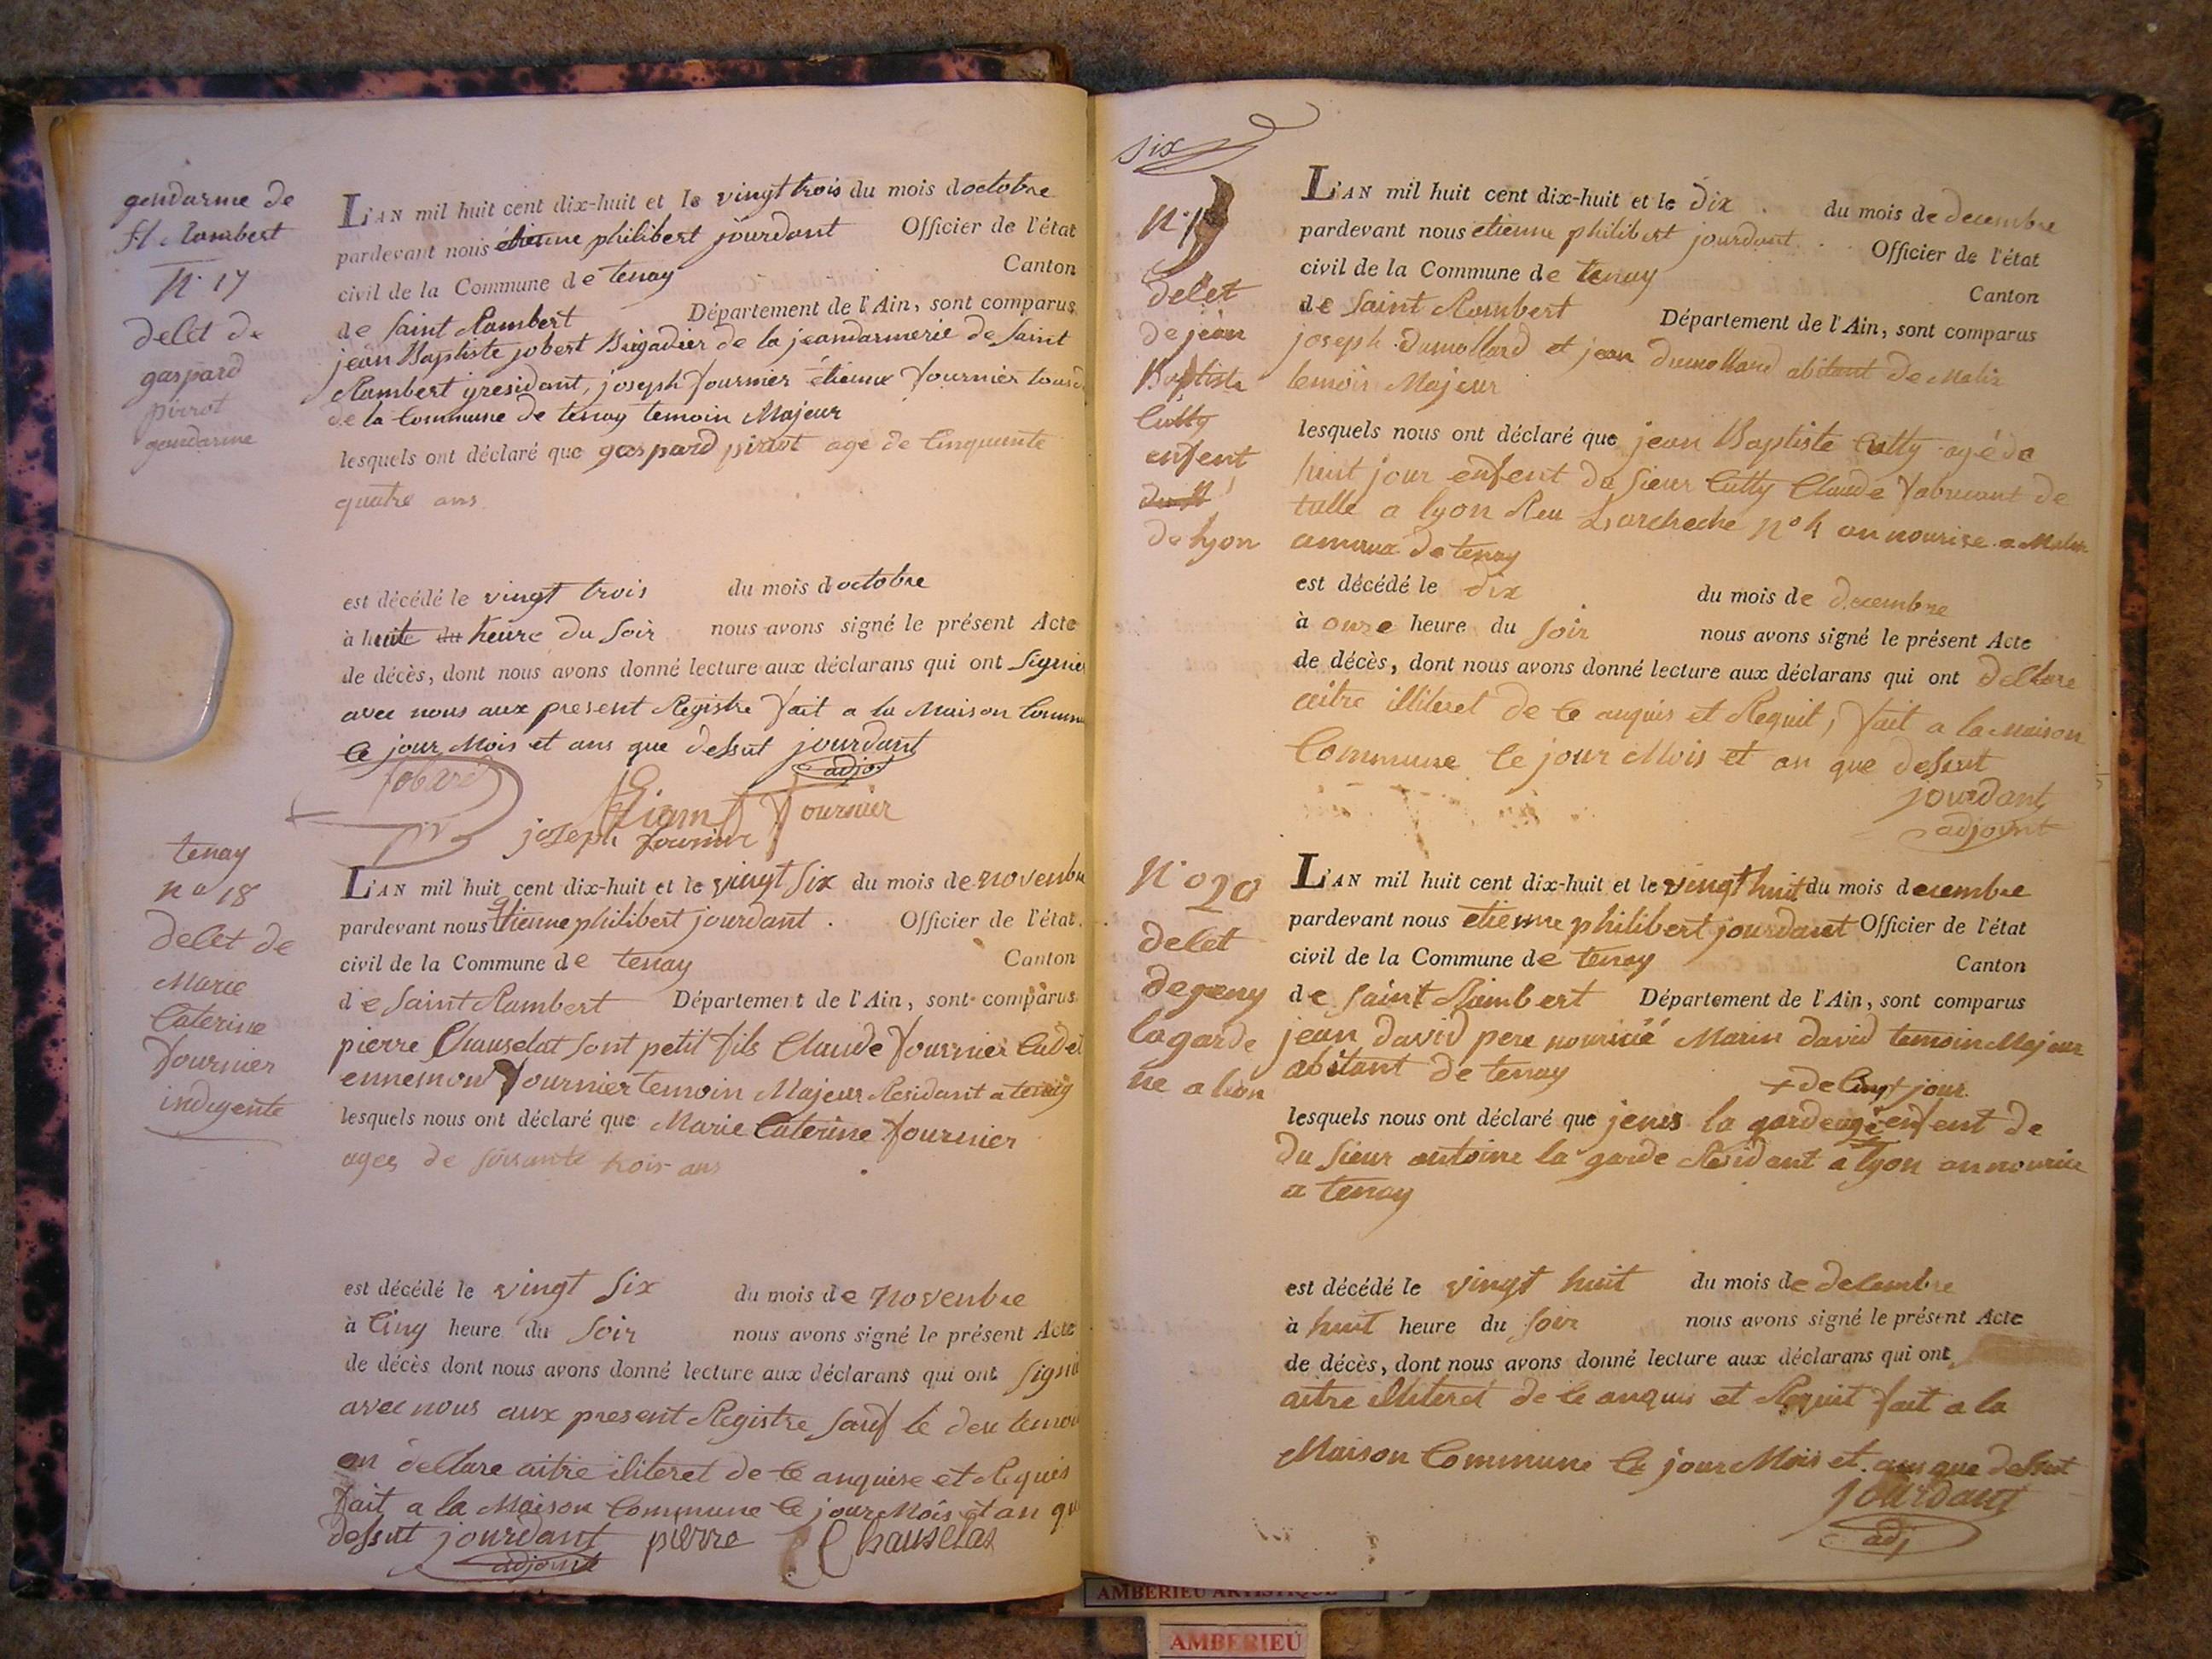 gendarme de
st Rambert
N. 17
delet de
gaspard
pirrot
gendarme
L'AN mil huit cent dix-huit et le vingt trois du mois doctobre
pardevant nous étienne philibert jourdant Officier de l'état
civil de la Commune de tenay Canton
de saint Rambert Département de l'Ain, sont comparus
jean Baptiste jobert Brigadier de la jeandarmerie de saint
Rambert yresidant, joseph fournier étienne fournier tous d
de la Commune de tenay temoin Majeur
lesquels ont déclaré que gaspard pirrot age de Cinquente
quatre ans
est décédé le vingt trois du mois doctobre
à huite du heure du soir nous avons signé le présent Acte
de décès, dont nous avons donné lecture aux déclarans qui ont signie
avec nous aux present Registre fait a la Maison Commu
Ce jour Mois et ans que dessut jourdant
adjo
fournier
joseph fournier
tenay
no 18
delet de
Marie
Caterine
fournier
indigente
L'AN mil huit cent dix-huit et le vingt six du mois de novenbre
pardevant nous étienne philibert jourdant . Officier de l'état
civil de la Commune de tenay Canton
de saint Rambert Département de l'Ain, sont comparus
pierre Chauselat sont petit fils Claude fournier Cadet
ennemon fournier temoin Majeur Residant a tenay
lesquels nous ont déclaré que Marie Caterine fournier
agee de soisante trois ans
est décédé le vingt six du mois de novenbre
à Cinq heure du soir nous avons signé le présent Acte
de décès dont nous avons donné lecture aux déclarans qui ont signé
avec nous aux present Registre sauf le deu temoi
on dellare aitre iliteret de Ce anquise et Requis
fait a la Maison Commune Ce jour Mois et an qu
dessut jourdant pierre Chauselat
adjoint
six
N. 19
delet
de jean
Baptiste
Cutty
enfent
de lyon
L'AN mil huit cent dix-huit et le dix . du mois de decembre
pardevant nous etienne philibert jourdant . Officier de l'état
civil de la Commune de tenay Canton
de saint Rambert Département de l'Ain, sont comparus
joseph dumollard et jean dumollard abitant de Malix
temoin Majeur
lesquels nous ont déclaré que jean Baptiste Cutty agé de
huit jour enfent du sieur Cutty Claude fabricant de
tulle a lyon Reu Larcheche no 4 an nourise a Malix
amaux de tenay
est décédé le dix du mois de decembre
à onze heure du soir nous avons signé le présent Acte
de décès, dont nous avons donné lecture aux déclarans qui ont dellare
aitre illiteret de Ce anquis et Requit, fait a la Maison
Commune Ce jour Mois et an que dessut
jourdant
adjoint
N. 020
delet
de jeny
lagarde
ne a lion
L'AN mil huit cent dix-huit et le vingt huit du mois decembre
pardevant nous etienne philibert jourdant Officier de l'état
civil de la Commune de tenay Canton
de saint Rambert Département de l'Ain, sont comparus
jean david pere nouricié Marin david temoin Majeur
abitant de tenay
+ de Cingt jour
lesquels nous ont déclaré que jenis la garde agé enfent de
du sieur antoine la garde Residant a lyon an nourice
a tenay
est décédé le vingt huit du mois de decembre
à huit heure du soir nous avons signé le présent Acte
de décès, dont nous avons donné lecture aux déclarans qui ont
aitre illiteret de Ce anquis et Requit fait a la
Maison Commune Ce jour Mois et an que dessut
jourdant
adj
AMBERIEU ARTISTIQUE
AMBERIEU